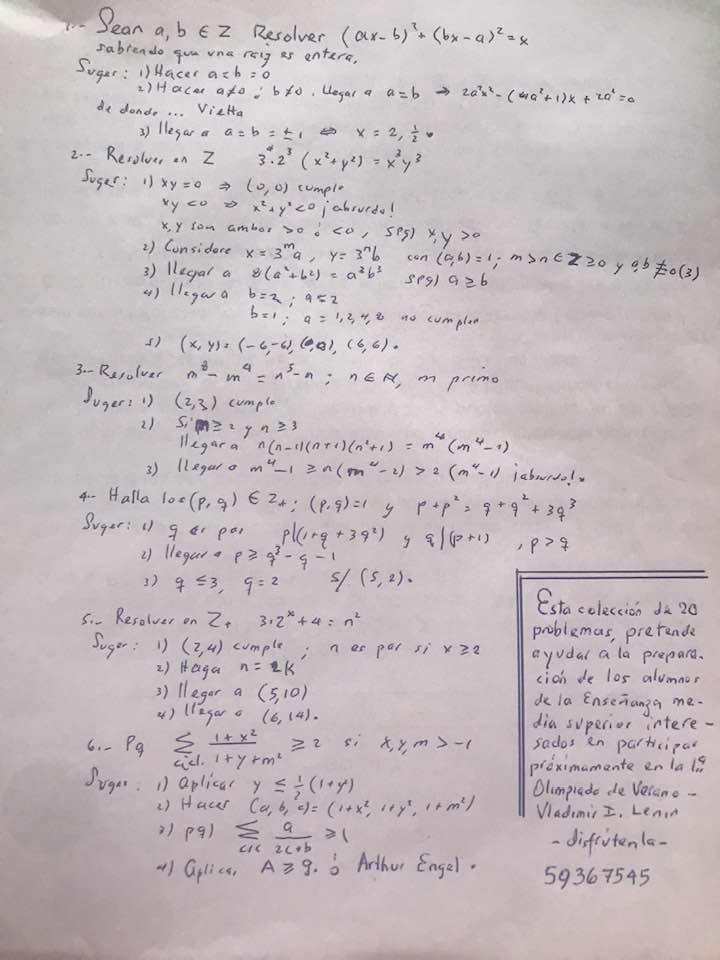 1.- Sean a, b ∈ Z Resolver (ax-b)² + (bx-a)² = x
sabiendo que una raiz es entera.
Suger: 1) Hacer a=b=0
2) Hacer a≠0 ; b≠0. llegar a a=b ⇒ 2a²x² - (4a²+1)x + 2a² = 0
de donde ... Vietta
3) llegar a a=b=±1 ⇔ x=2, ½.
2.- Resolver en Z 3⁴·2³ (x²+y²) = x³y³
Suger: 1) xy=0 ⇒ (0,0) cumple
xy<0 ⇒ x²+y²<0 ¡absurdo!
x,y som ambos >0 ó <0, spg) x,y>0
2) Considere x=3ᵐa, y=3ⁿb con (a,b)=1; m>n ∈ Z≥0 y a,b≢0(3)
3) llegar a 8(a²+b²) = a³b³ spg) a≥b
4) llegar a b=2 ; a≤2
b=1 ; a=1,2,4,8 no cumplen
5) (x,y)=(-6,-6),(0,0),(6,6).
3.- Resolver m⁸-m⁴=n⁵-n ; n∈N, m primo
Suger: 1) (2,3) cumple
2) Si m≥2 y n≥3
llegar a n(n-1)(n+1)(n²+1) = m⁴(m⁴-1)
3) llegar a m⁴-1 ≥ n(m⁴-2) > 2(m⁴-1) ¡absurdo!.
4- Halla los (p,q) ∈ Z₊ ; (p,q)=1 y p+p² = q+q²+3q³
Suger: 1) q es par p|(1+q+3q²) y q|(p+1) , p>q
2) llegar a p≥q³-q-1
3) q≤3, q=2 S/ (5,2).
5.- Resolver en Z₊ 3·2ˣ+4=n²
Suger: 1) (2,4) cumple ; n es par si x≥2
2) Haga n=2K
3) llegar a (5,10)
4) llegar a (6,14).
6.- Pq ∑ cicl. (1+x²)/(1+y+m²) ≥ 2 si x,y,m>-1
Suger: 1) Aplicar y ≤ ½(1+y²)
2) Hacer (a,b,c)=(1+x², 1+y², 1+m²)
3) pq) ∑ cic a/(2c+b) ≥ 1
4) Aplica. A≥g. ó Arthur Engel.
Esta colección de 20
problemas, pretende
ayudar a la prepara-
ción de los alumnos
de la Enseñanza me-
dia superior intere-
sados en participar
próximamente en la 1ª
Olimpiada de Verano-
Vladimir I. Lenin
-disfrútenla-
59367545